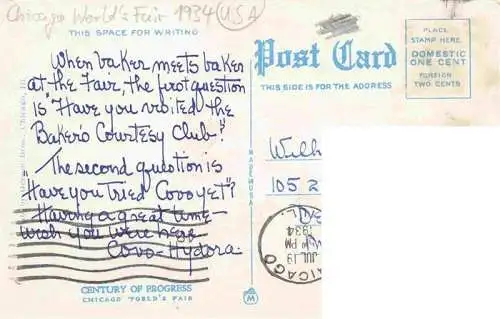 Chicago World's Fair 1934 (USA)
THIS SPACE FOR WRITING
When baker meets baker
at the Fair, the first question
is "Have you visited the
Baker's Courtesy Club?"
The second question is
"Have you tried Covo yet"?
Having a great time—
wish you were here
Covo-Hydora.
CENTURY OF PROGRESS
CHICAGO WORLD'S FAIR
Post Card
THIS SIDE IS FOR THE ADDRESS
PLACE
STAMP HERE
DOMESTIC
ONE CENT
FOREIGN
TWO CENTS
MADE IN USA
Wilh
105 2
CHICAGO
JUL 19
PM
1934
M